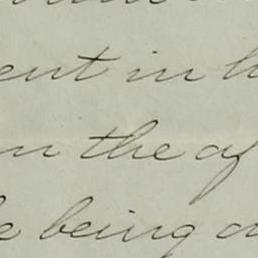 ent in h
n the af
e being a